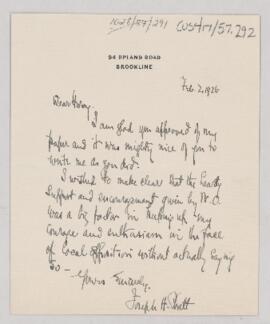 CUSH/1/57.292
94 UPLAND ROAD
BROOKLINE
Feb. 2, 1926
Dear Harvey,
I am glad you approved of my
paper and it was mighty nice of you to
write me as you did.
I wished to make clear that the hearty
support and encouragement given by W. O.
was a big factor in keeping up my
courage and enthusiasm in the face
of local opposition without actually saying
so —
Yours Sincerely,
Joseph H. Pratt